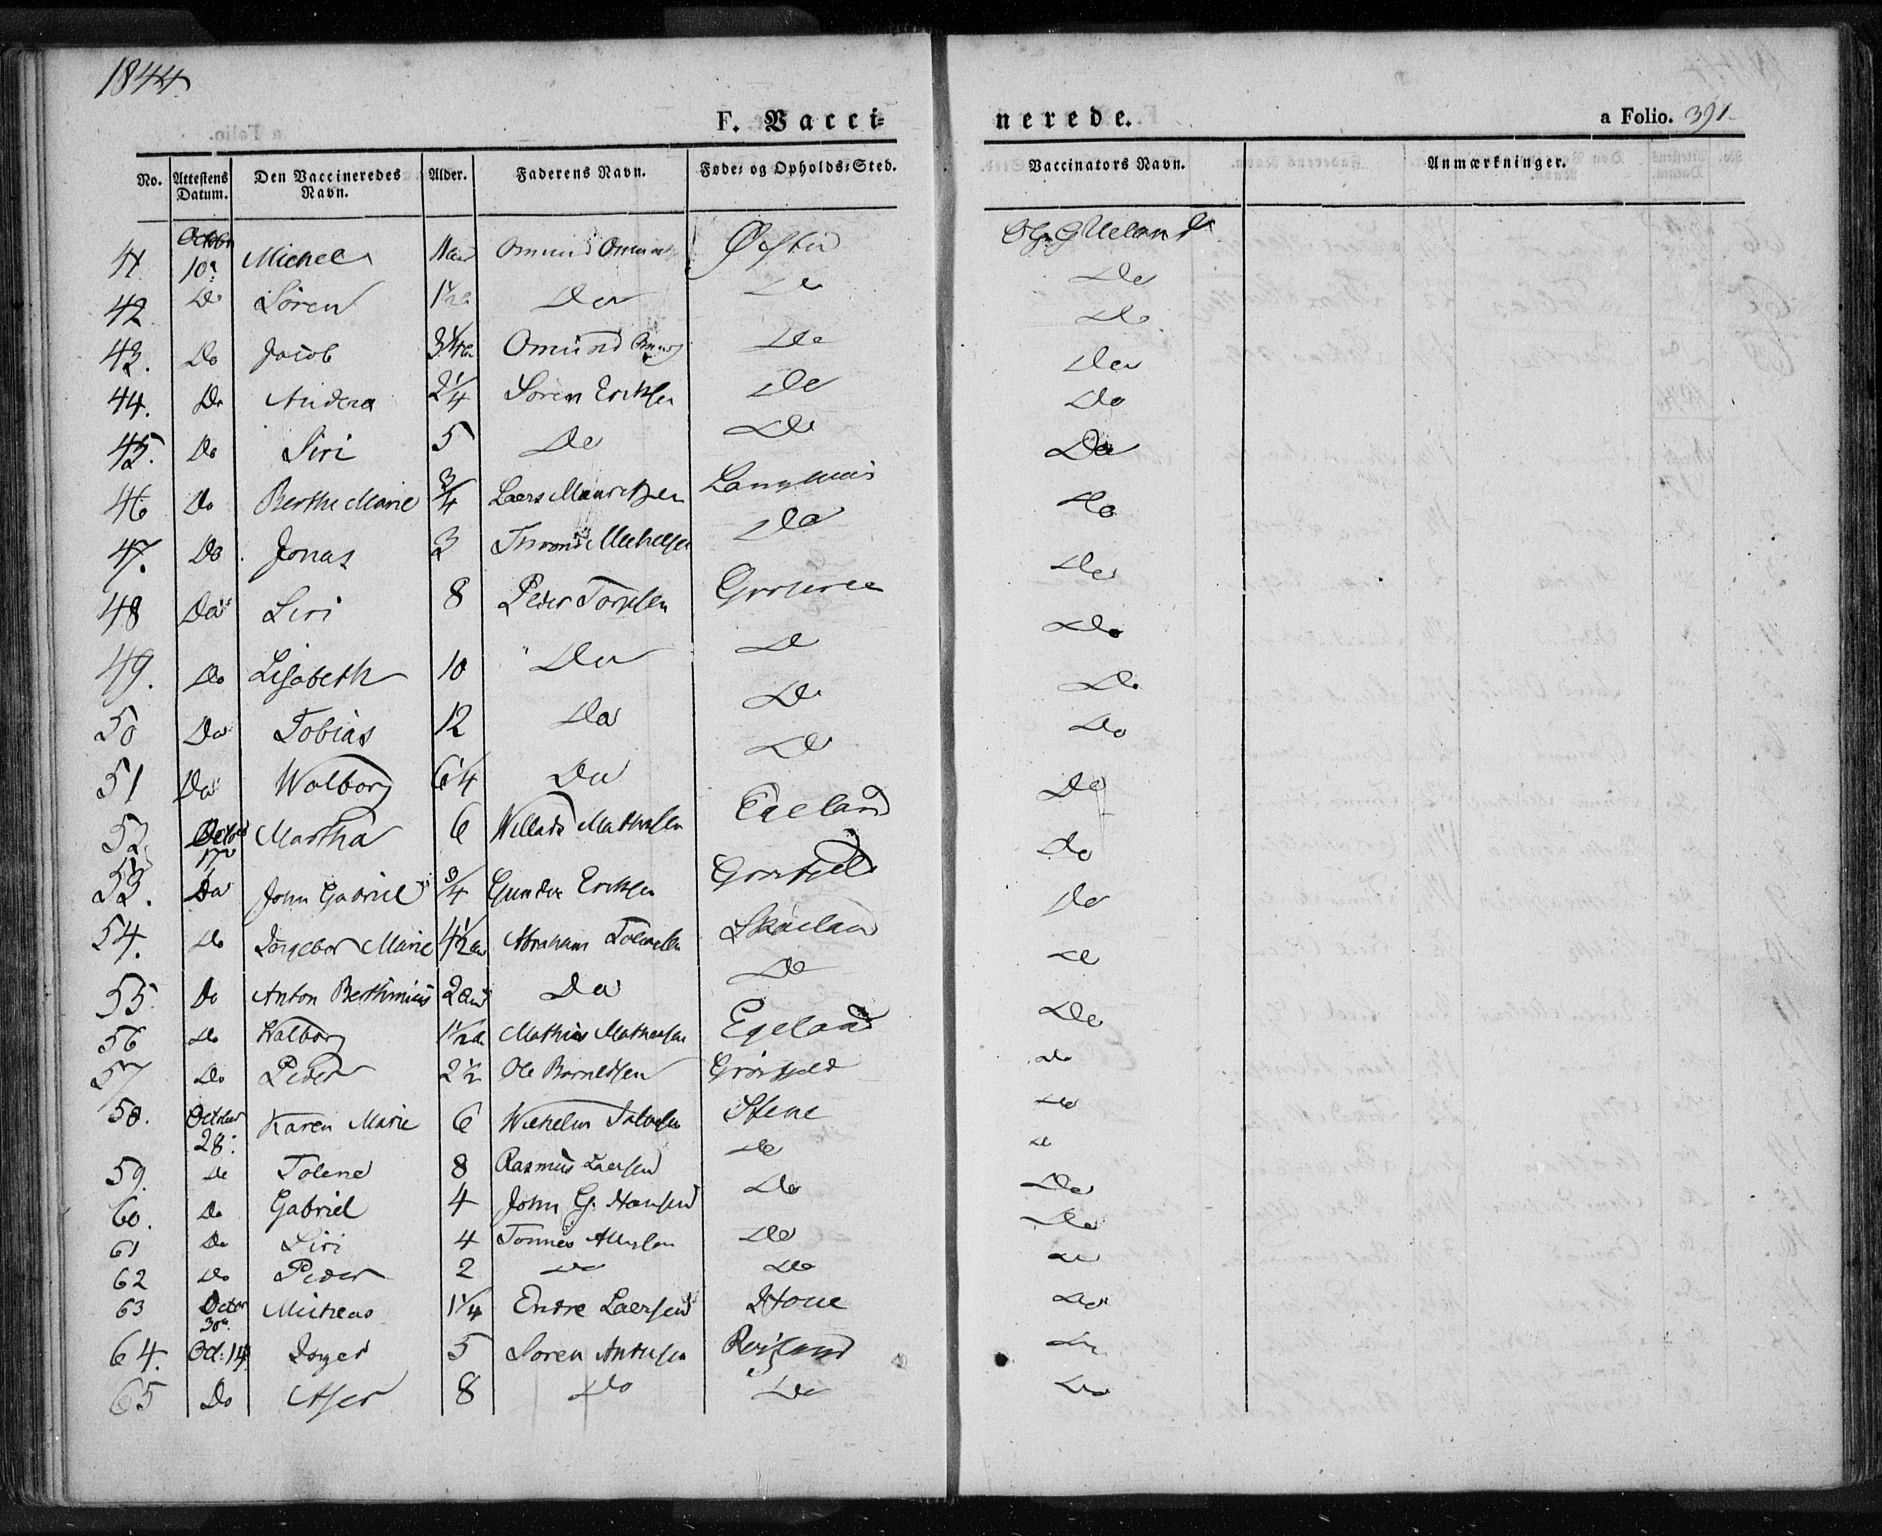 1844
F. Vacci= nerede. a Folio. 391
No. Attestens Datum. Den Vaccineredes Navn. Alder. Faderens Navn. Føde= og Opholds=Sted. Vaccinators Navn. Anmærkninger.
41 Octobr 10 Michel 1 aar Omund Øvstbø Ueland
42 Do Sören 1½ Do Do Do
43. Do Jacob 3¼ Omund Do Do
44. Do Andrea 2¼ Sören Eriksen Do Do
45. Do Siri 5 Do Do Do
46 Do Berthe Marie ¾ Laers Mauritzen Do
47. Do Jonas 3 Do Do
48 Do Siri 8 Peder Do
49. Do Lisabeth 10 Do Do Do
50 Do Tobias 12 Do Do Do
51 Do Wolborg 6¼ Do Do Do
52. Octbr 17 Martha 6 Willads Mathisen Egeland Do
53. Do John Gabriel ¾ Gunder Eriksen Do
54. Do Ingebor Marie 4½ aar Abraham Tolavsen Skaeland Do
55. Do Anton Berthinius 2 aar Do Do Do
56 Do Walborg 1½ Mathias Mathiesen Egeland Do
57 Do Peder 2½ Ole Barneldsen Do
58. October 28. Karen Marie 6 Wilhelm Stene Do
59. Do Tolene 8 Rasmus Laersen Do Do
60. Do Gabriel 4 John G. Hansen Do Do
61 Do Siri 4 Tönnes Do Do
62 Do Peder 2 Do Do Do
63 Octbr 30 1¼ Endre Laersen Do
64. Oct: 14 Inger 5 Sören Do
65 Do Aser 8 Do Do Do